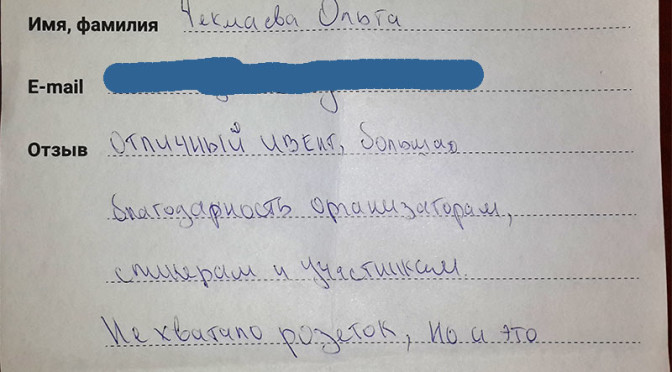 Имя, фамилия Чекмаева Ольга
E-mail
Отзыв отличный ивент, большая
благодарность организаторам,
спикерам и участникам.
Не хватало розеток, но и это